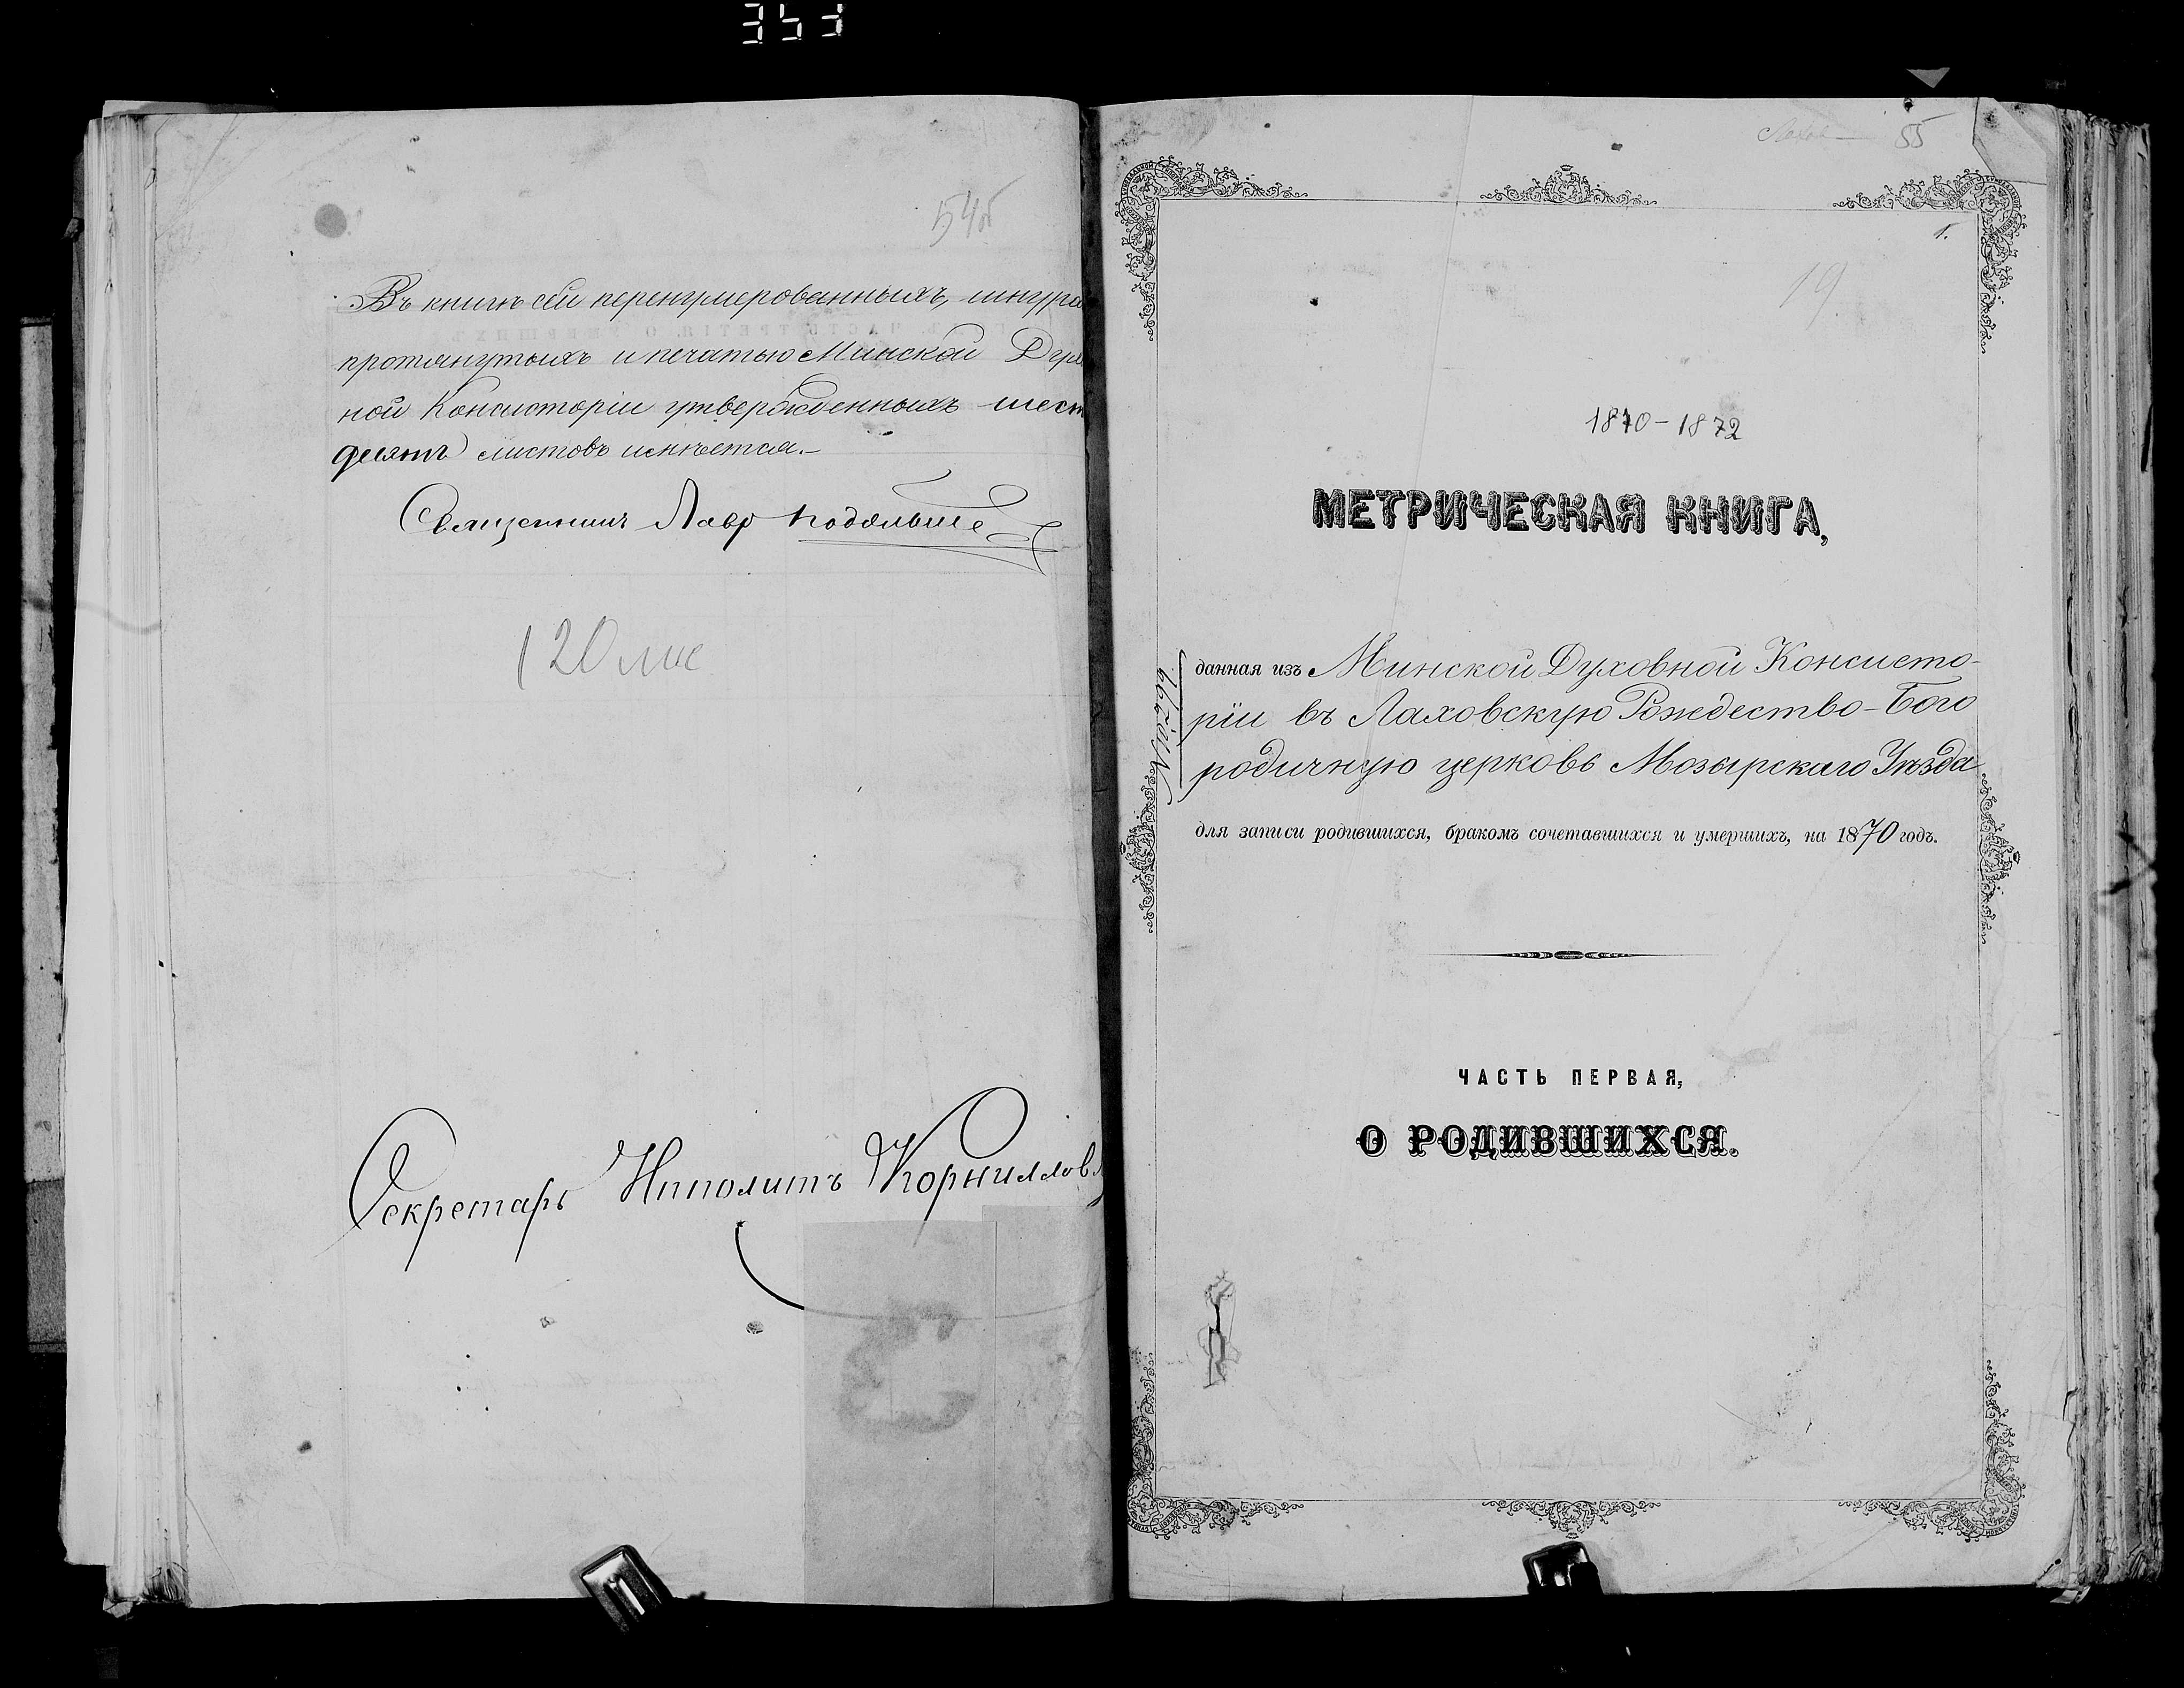 353
54об
Въ книгѣ сей перенумерованныхъ, шнура
протянутыхъ и печатью Минской Дух
ной Консисторіи утвержденныхъ шест
десятъ листовъ имѣется.-
Священникъ Лавр
120 лис
Секретарь Ипполитъ Корниллов
55
1.
19
1870-1872
МЕТРИЧЕСКАЯ КНИГА,
данная изъ Минской Духовной Консисто-
ріи въ Лаховскую Рождество-Бого
родичную церковь Мозырскаго Уѣзда
для записи родившихся, бракомъ сочетавшихся и умершихъ, на 1870 годъ.
ЧАСТЬ ПЕРВАЯ,
О РОДИВШИХСЯ.